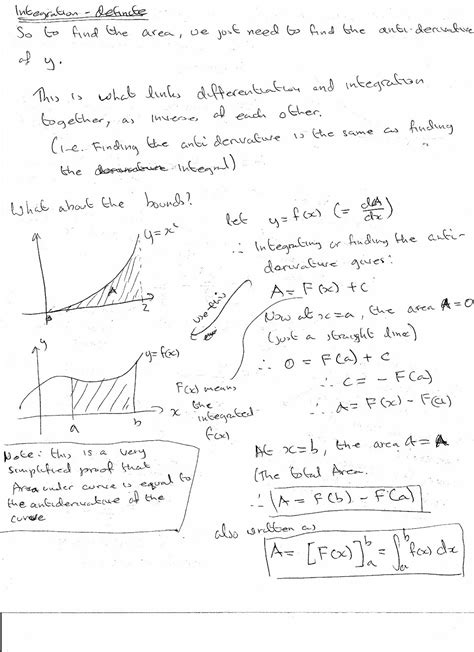 Integration - definite
So to find the area, we just need to find the anti-derivative
of y.
This is what links differentiation and integration
together, as inverse of each other.
(i.e. Finding the anti derivative is the same as finding
the integral)
What about the bounds?
y=x²
A
2
let y=f(x) (= dA/dx)
∴ Integrating or finding the anti-
derivative gives:
A = F(x) + c
use this
Now at x=a, the area A=0
(just a straight line)
∴ 0 = F(a) + c
∴ c = - F(a)
∴ A = F(x) - F(a)
y
y=f(x)
a
b
x
F(x) means
the
integrated
f(x)
At x=b, the area A = A
(The total Area.
∴ A = F(b) - F(a)
also written as
A = [F(x)]ₐᵇ = ∫ₐᵇ f(x) dx
Note: this is a very
simplified proof that
Area under curve is equal to
the antiderivative of the
curve